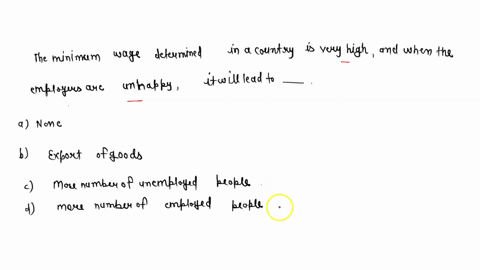 The minimum wage determined in a country is very high, and when the
employers are unhappy, it will lead to ___.
a) None
b) Export of goods
c) More number of unemployed people.
d) more number of employed people.